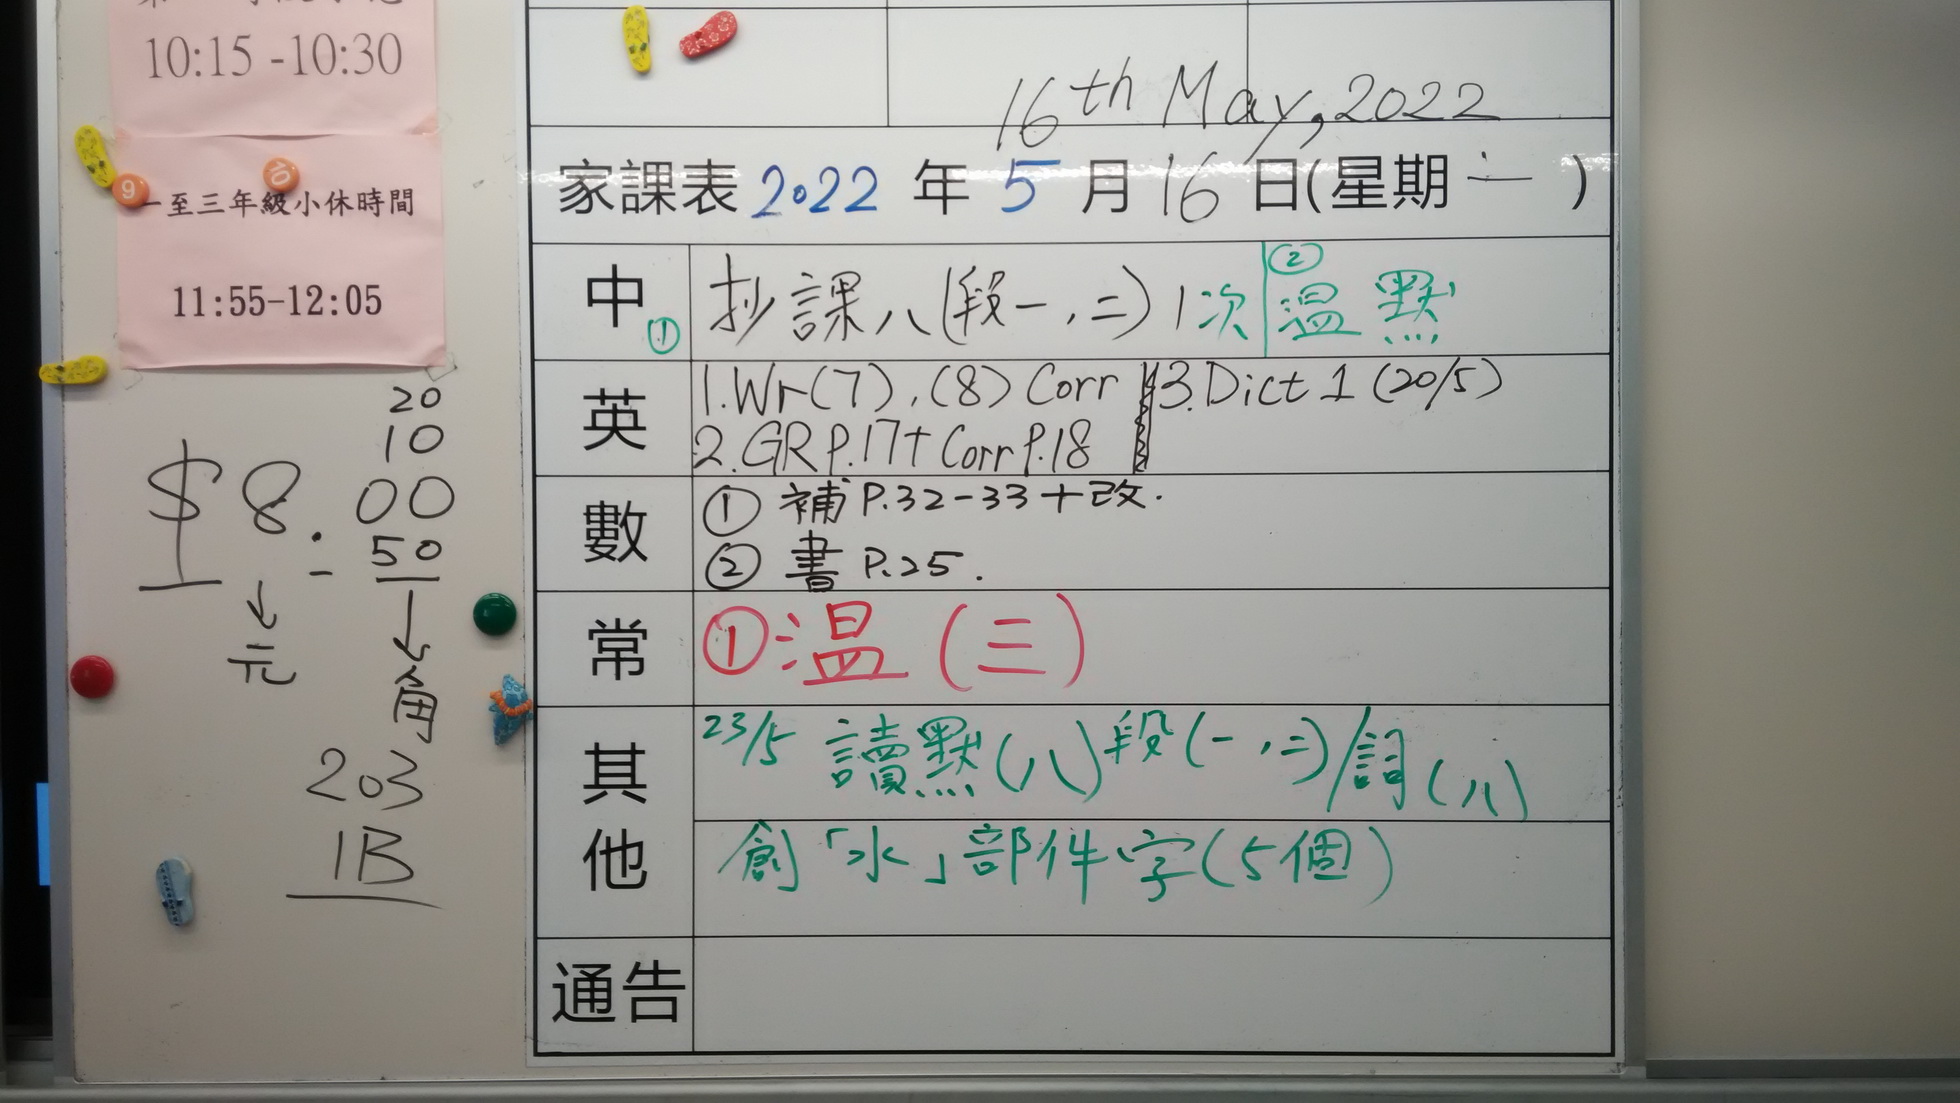 10:15 -10:30
一至三年級小休時間
11:55-12:05
20
10
$ 8.00
50
元
角
203
1B
16th May, 2022
家課表 2022 年 5 月 16 日(星期一)
中 ① 抄課八(段一,二) 1次 ② 温默
英 1. Wr(7), (8) Corr 3. Dict 1 (20/5)
2. GR P.17+ Corr P.18
數 ① 補 P.32-33+改.
② 書 P.25.
常 ①温(三)
其他 23/5 讀默(八)段(一,二)/詞(八)
創「水」部件字(5個)
通告